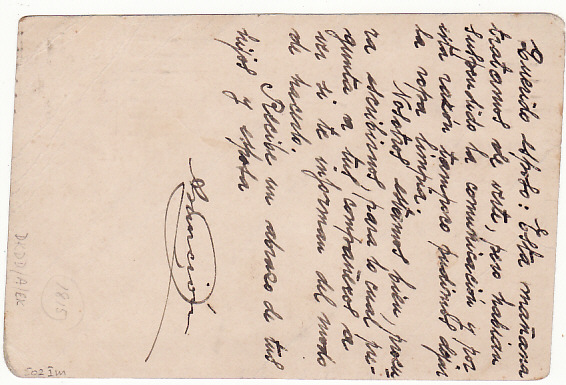 Querido esposo: Esta mañana
tratamos de verte, pero habían
suspendido la comunicación y por
esta razón tampoco pudimos dejar
la ropa limpia.
Nosotros estamos bien, procu
ra escribirnos, para lo cual pre
gunta a tus compañeros a
ver si te informan del modo
de hacerlo.
Recibe un abrazo de tus
hijos y esposa
Asunción
1815
502